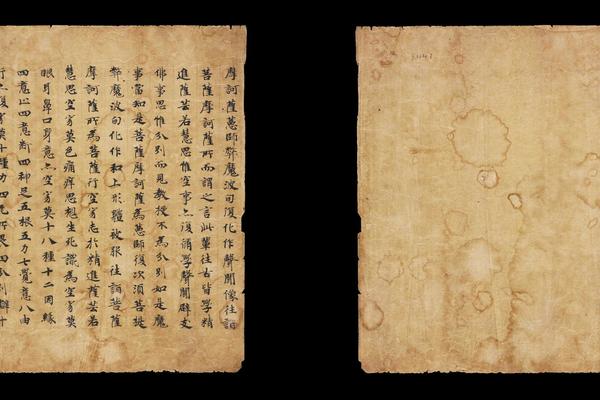 摩訶薩惡師弊魔波旬復化作聲聞像往詣
菩薩摩訶薩所而謂之言此輩往古皆學精
進薩芸若慧思惟空事亦復誦學聲聞辟支
佛事思惟分別而見教授不為分別如是魔
事當知是菩薩摩訶薩為惡師復次須菩提
弊魔波旬化作和上形體被服往詣菩薩
摩訶薩所為菩薩行空寂志於精進薩芸若
慧思空寂莫色痛痒思想生死識為空寂莫
眼耳鼻口身意亦空寂莫十八種十二因緣
四意止四意斷四神足五根五力七覺意八由
行亦復寂莫十種力四無所畏四分別辯十